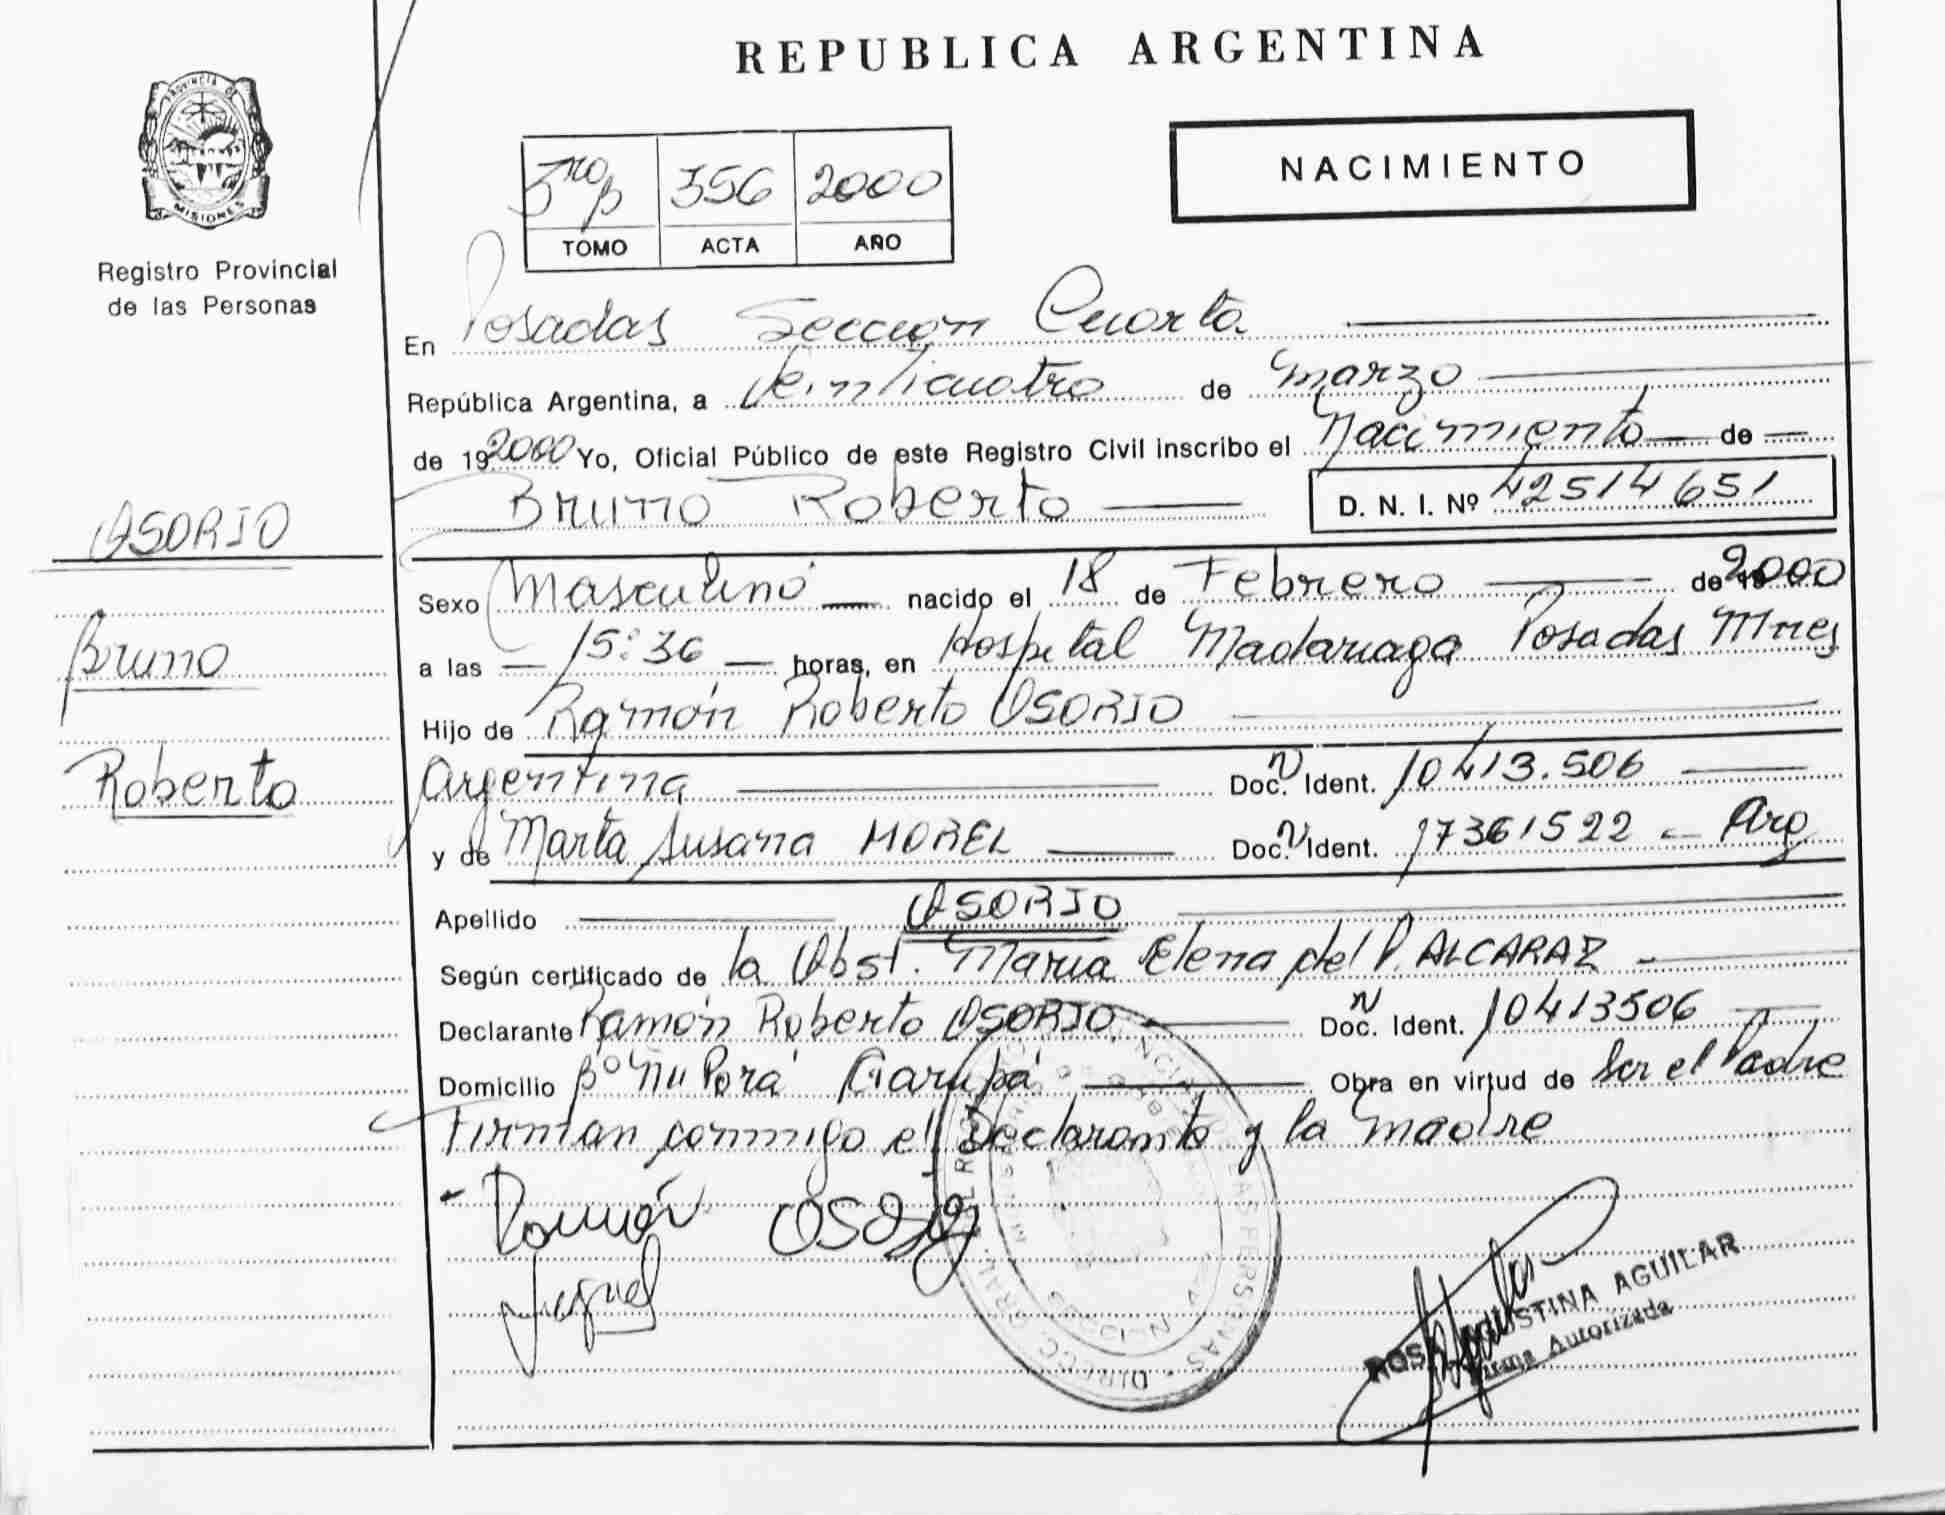 REPUBLICA ARGENTINA
PROVINCIA DE
MISIONES
Registro Provincial
de las Personas
NACIMIENTO
356 2000
TOMO ACTA AÑO
En Posadas Seccion Cuarta
República Argentina, a Veinticuatro de marzo
de 19 2000 Yo, Oficial Público de este Registro Civil inscribo el Nacimiento de
Bruno Roberto D. N. I. Nº 42514651
OSORIO
Bruno
Roberto
Sexo Masculino nacido el 18 de Febrero de 19 2000
a las 15:36 horas, en Hospital Madariaga Posadas Mnes
Hijo de Ramón Roberto OSORIO
Argentina Doc. N Ident. 10413.506
y de Marta Susana MOREL Doc. N Ident. 17361522 - Arg
Apellido OSORIO
Según certificado de la Obst. Maria Elena del V. ALCARAZ
Declarante Ramón Roberto OSORIO. Doc. N Ident. 10413506
Domicilio Bº Ñu Porá Garupá Obra en virtud de Ser el Padre
Firman conmigo el Declarante y la madre
Ramón
AGUSTINA AGUILAR
Firma Autorizada